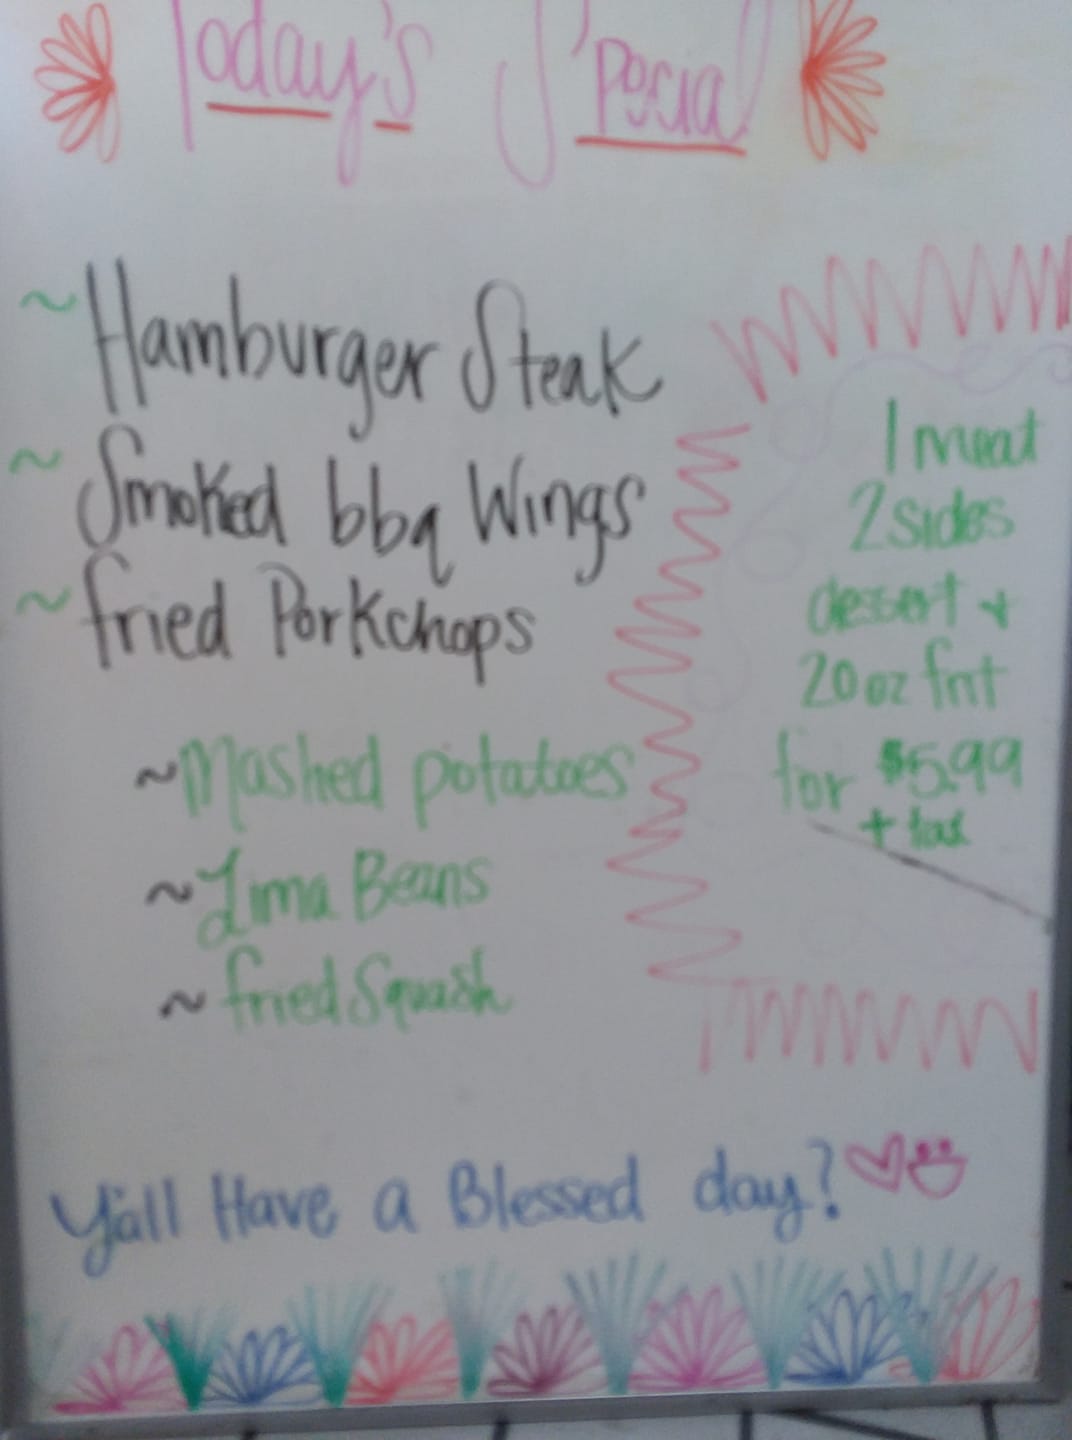 Today's Special
~Hamburger Steak
~Smoked bbq Wings
~fried Porkchops
~Mashed potatoes
~Lima Beans
~fried Squash
1 meat
2 sides
dessert +
20 oz fnt
for $5.99
+ tax
Y'all Have a Blessed day!